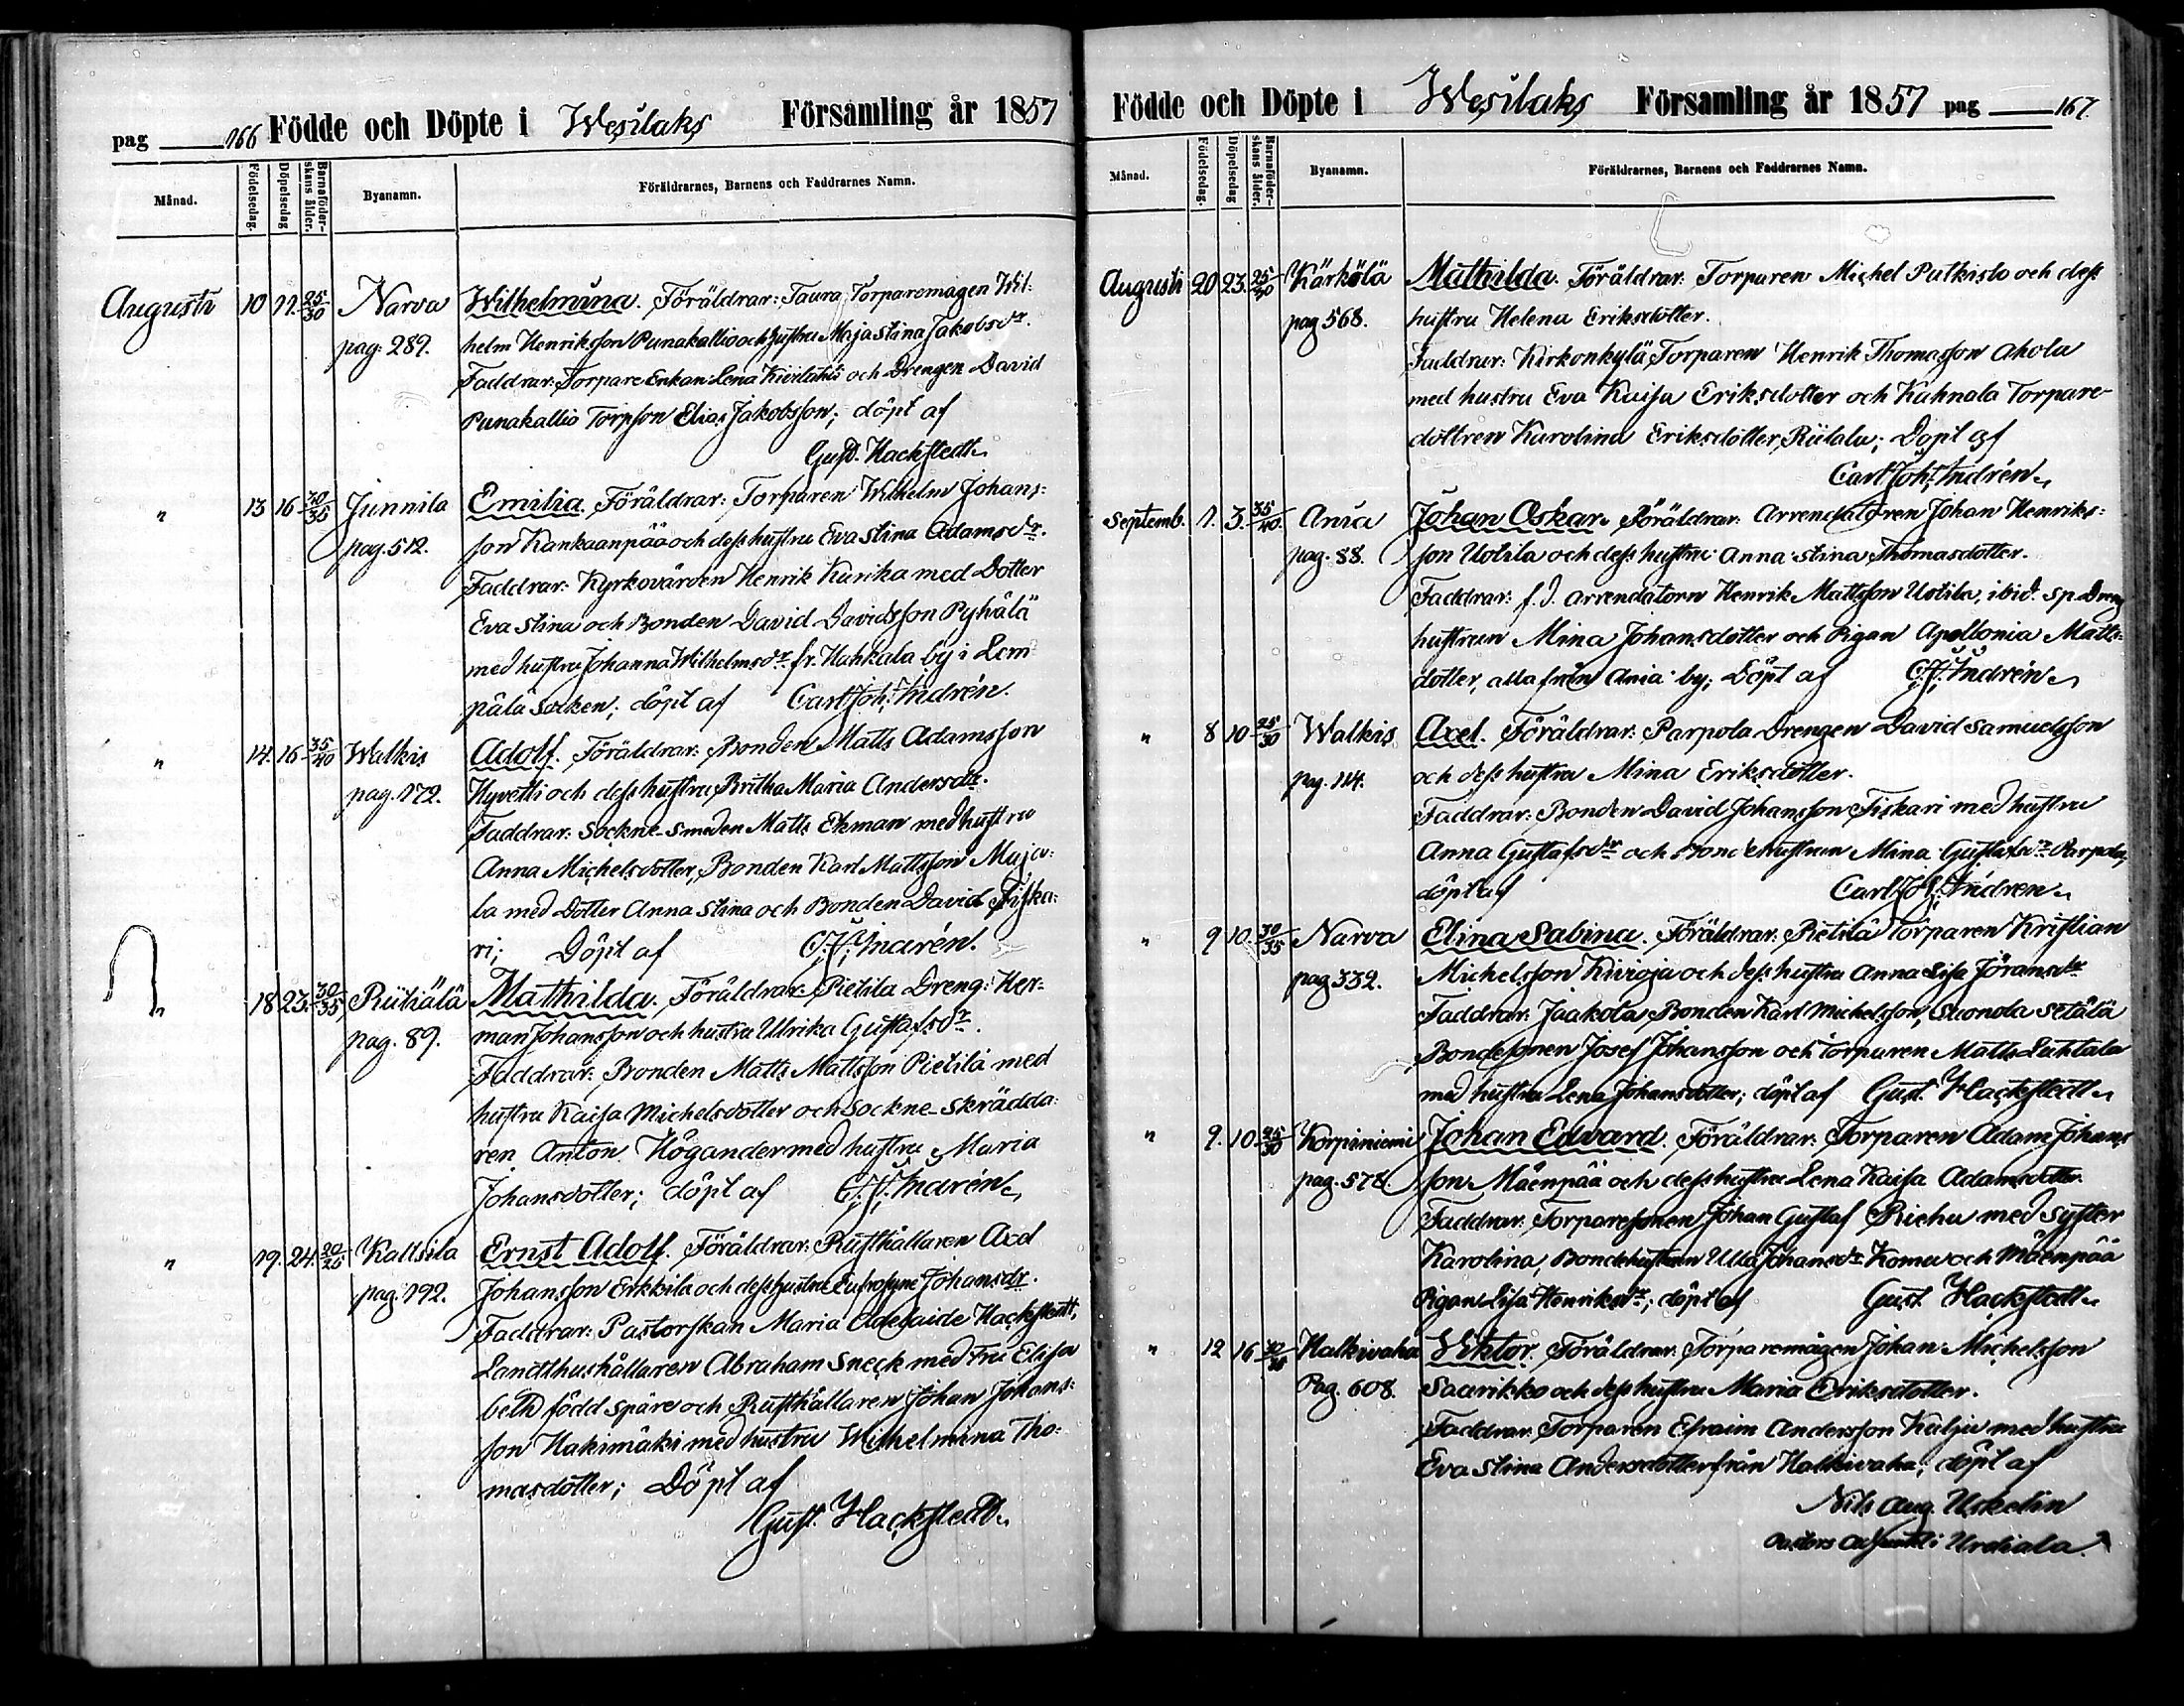 pag 166 Födde och Döpte i Wesilaks Församling år 1857
Månad. Födelsedag. Döpelsedag Barnaföderskans ålder. Byanamn. Föräldrarnes, Barnens och Faddrarnes Namn.
Augusti 10 11. 25/30 Narva Wilhelmina. Föräldrar: Taura Torparemågen Wil-
pag. 289. helm Henriksson Punakallio och hustru Maja Stina Jakobsdr.
Faddrar: Torpare Enkan Lena och Drengen David
Punakallio Torpson Elias Jakobsson; döpt af
Gust. Hackstedt
" 13 16 30/35 Junnila Emilia. Föräldrar: Torparen Wilhelm Johans-
pag. 512. son Kankaanpää och dess hustru Eva Stina Adamsdr.
Faddrar: Kyrkovärden Henrik Kurika med Dotter
Eva Stina och Bonden David Davidsson Pyhälä
med hustru Johanna Wilhelmsdr. fr. Hahkala by i Lem-
pälä Socken; döpt af Carl Joh. Indrén.
" 14. 16 35/40 Walkis Adolf. Föräldrar: Bonden Matts Adamsson
pag. 172. Hyvetti och dess hustru Britha Maria Andersdr.
Faddrar: Sockne-Smeden Matts Ekman med hustru
Anna Michelsdotter, Bonden Karl Mattsson Maja-
la med Dotter Anna Stina och Bonden David Fiska-
ri; Döpt af C. J. Indrén.
18 23. 30/35 Riitiälä Mathilda. Föräldrar: Pietilä Dreng. Her-
pag. 89. man Johansson och hustru Ulrika Gustafsdr.
Faddrar: Bonden Matts Mattsson Pietilä med
hustru Kaisa Michelsdotter och Sockne-Skrädda-
ren Anton Högander med hustru Maria
Johansdotter; döpt af C. J. Indrén
" 19. 24. 20/25 Kaltsila Ernst Adolf. Föräldrar: Rusthållaren Axel
pag. 192. Johansson Erkkilä och dess hustru Eufrosyne Johansdr.
Faddrar: Pastorskan Maria Adelaide Hackstedt,
Landthushållaren Abraham Sneck med Fru Elisa
beth född Spåre och Rusthållaren Johan Johans-
son Hakimäki med hustru Wilhelmina Tho-
masdotter; Döpt af
Gust. Hackstedt
Födde och Döpte i Wesilaks Församling år 1857 pag 167.
Månad. Födelsedag. Döpelsedag Barnaföderskans ålder. Byanamn. Föräldrarnes, Barnens och Faddrarnes Namn.
Augusti 20 23. 25/30 Kärkölä Mathilda. Föräldrar: Torparen Michel Putkisto och dess
pag 568. hustru Helena Eriksdotter.
Faddrar: Kirkonkylä Torparen Henrik Thomasson Ahola
med hustru Eva Kaisa Eriksdotter och Kuhnala Torpare-
dottren Karolina Eriksdotter Riilala; Döpt af
Carl Joh. Indrén
Septemb. 1. 3. 35/40 Ania Johan Oskar. Föräldrar: Arrendatoren Johan Henriks-
pag. 88. son Uotila och dess hustru Anna Stina Thomasdotter.
Faddrar: f. d. arrendatorn Henrik Mattsson Uotila, ibid. sp. Dreng
hustrun Mina Johansdotter och Pigan Apollonia Matts-
dotter, alla från Ania by; Döpt af C. J. Indrén
" 8 10 25/30 Walkis Axel. Föräldrar: Parpola Drengen David Samuelsson
pag. 114. och dess hustru Mina Eriksdotter.
Faddrar: Bonden David Johansson Fiskari med hustru
Anna Gustafsdr och Bondehustrun Mina Gustafsdr Parpola,
döpt af Carl Joh. Indren
" 9 10. 30/35 Narva Elina Sabina. Föräldrar: Pietilä Torparen Kristian
pag 332. Michelsson Kivioja och dess hustru Anna Lisa Jöransdr
Faddrar: Jaakola Bonden Karl Michelsson, Suonola Setälä
Bondesonen Josef Johansson och Torparen Matts Luhtala
med hustru Lena Johansdotter; döpt af Gust. Hackstedt
" 9. 10 25/30 Korpiniemi Johan Edvard. Föräldrar: Torparen Adam Johans
pag. 578. son Mäenpää och dess hustru Lena Kaisa Adamsdotter.
Faddrar: Torparesonen Johan Gustaf Riehu med Syster
Karolina, Bondehustrun Ulla Johansdr Komu och Mäenpää
Pigan Lisa Henriksdr; döpt af Gust. Hackstedt
" 12 16 30/35 Halkivaha Wiktor. Föräldrar: Torparemågen Johan Michelsson
Pag. 608. Saarikko och dess hustru Maria Eriksdotter.
Faddrar: Torparen Efraim Andersson Kalju med hustru
Eva Stina Andersdotter från Halkivaha; döpt af
Nils Aug. Uskelin
Pastors Adjunkt i Urdiala